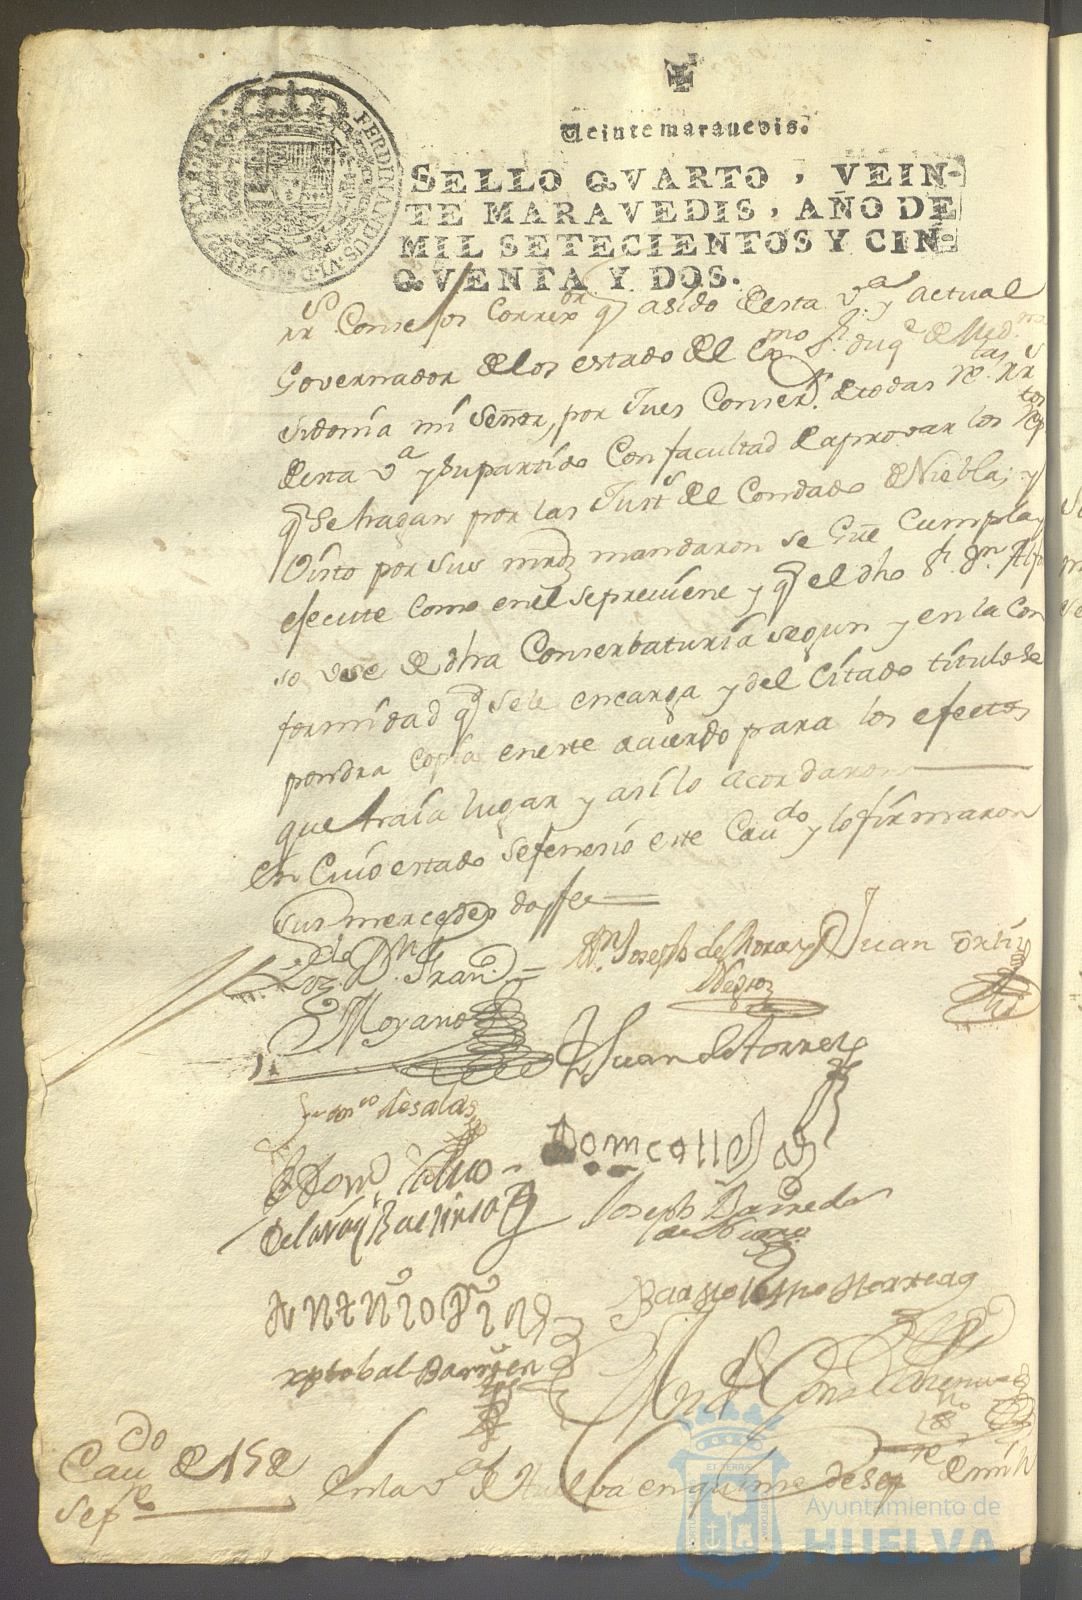 Veinte maravedis.
SELLO QVARTO, VEIN-
TE MARAVEDIS, AÑO DE
MIL SETECIENTOS Y CIN-
QVENTA Y DOS.
FERDINANDUS VI D G
Correxor q asido desta va y actual
Governador delos estado del Exmo Sr duqe de Medna
sidonia mi Señor, por Jues Conserr de todas
desta va y su partido Con facultad de aprovar los
q se hagan por las Justs del Condado de Niebla; y
Visto por sus mrdz mandaron se Gue Cumpla y
efecute como en el sepreuiene y q el dho Sr Dn Alfon
so vse de dha Conserbaturia segun y en la Con
formidad q se le encarga y del Citado titulo se
pondra copia en este acuerdo para los efectos
que haia lugar y asi lo acordaron
En Cuio estado se fenecio este Caudo y lo firmaron
sus mercedes doffee
Lizdo Dn Frano
Morano
Dn Joseph de Mora y
Negro
Juan Ortiz
Juan de torres
de salas
Joseph
Bartolome
xptobal Barrien
Caudo de 15 de
Sepre
En la va de Huelva en quinse de sepre de mill
Ayuntamiento de
HUELVA